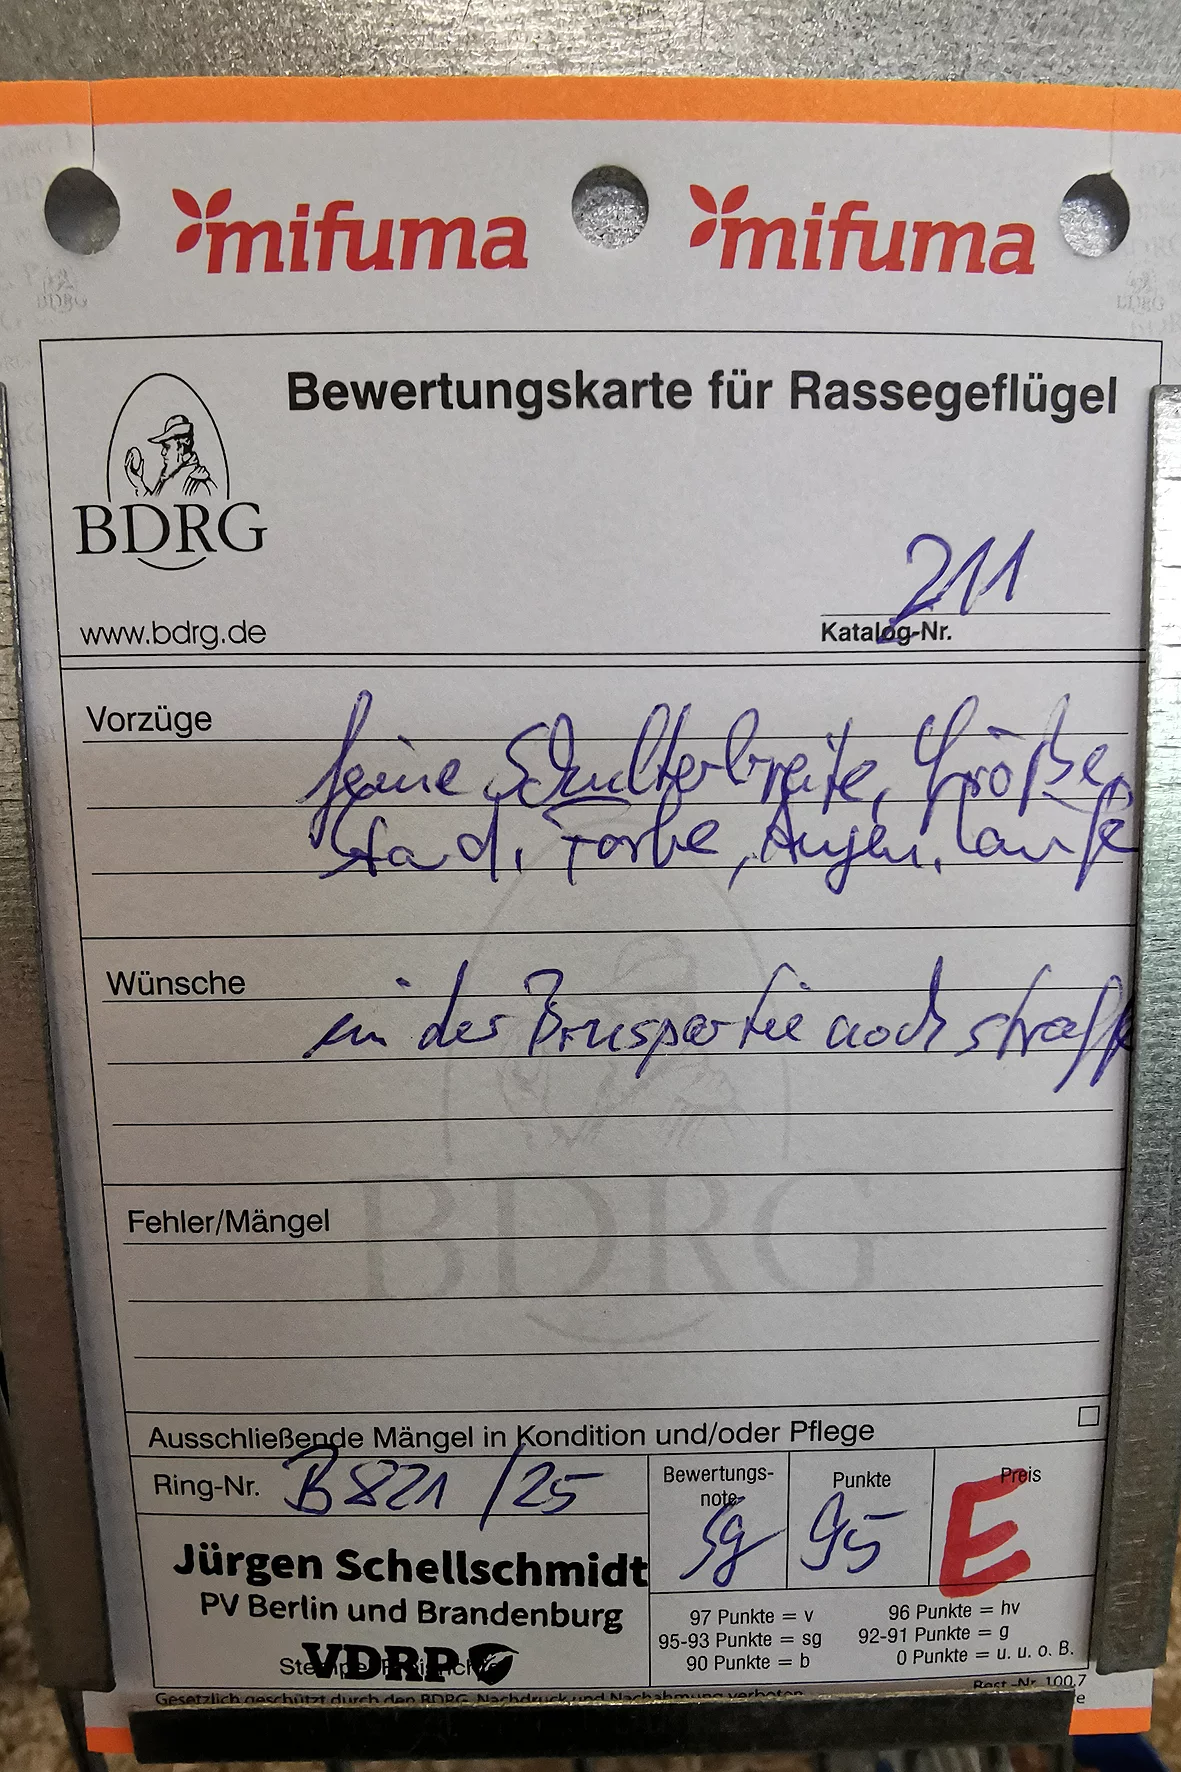 mifuma mifuma
Bewertungskarte für Rassegeflügel
BDRG
www.bdrg.de
211
Katalog-Nr.
Vorzüge
feine Schulterbreite, Größe,
Stand, Farbe, Augen, Läufe
Wünsche
in der Bruspartie noch straff
Fehler/Mängel
BDRG
Ausschließende Mängel in Kondition und/oder Pflege
Ring-Nr. B 821 /25
Bewertungs-
note
sg
Punkte
95
Preis
E
Jürgen Schellschmidt
PV Berlin und Brandenburg
VDRP
97 Punkte = v
96 Punkte = hv
95-93 Punkte = sg
92-91 Punkte = g
90 Punkte = b
0 Punkte = u. u. o. B.
Best.-Nr. 100.7
Gesetzlich geschützt durch den BDRG, Nachdruck und Nachahmung verboten